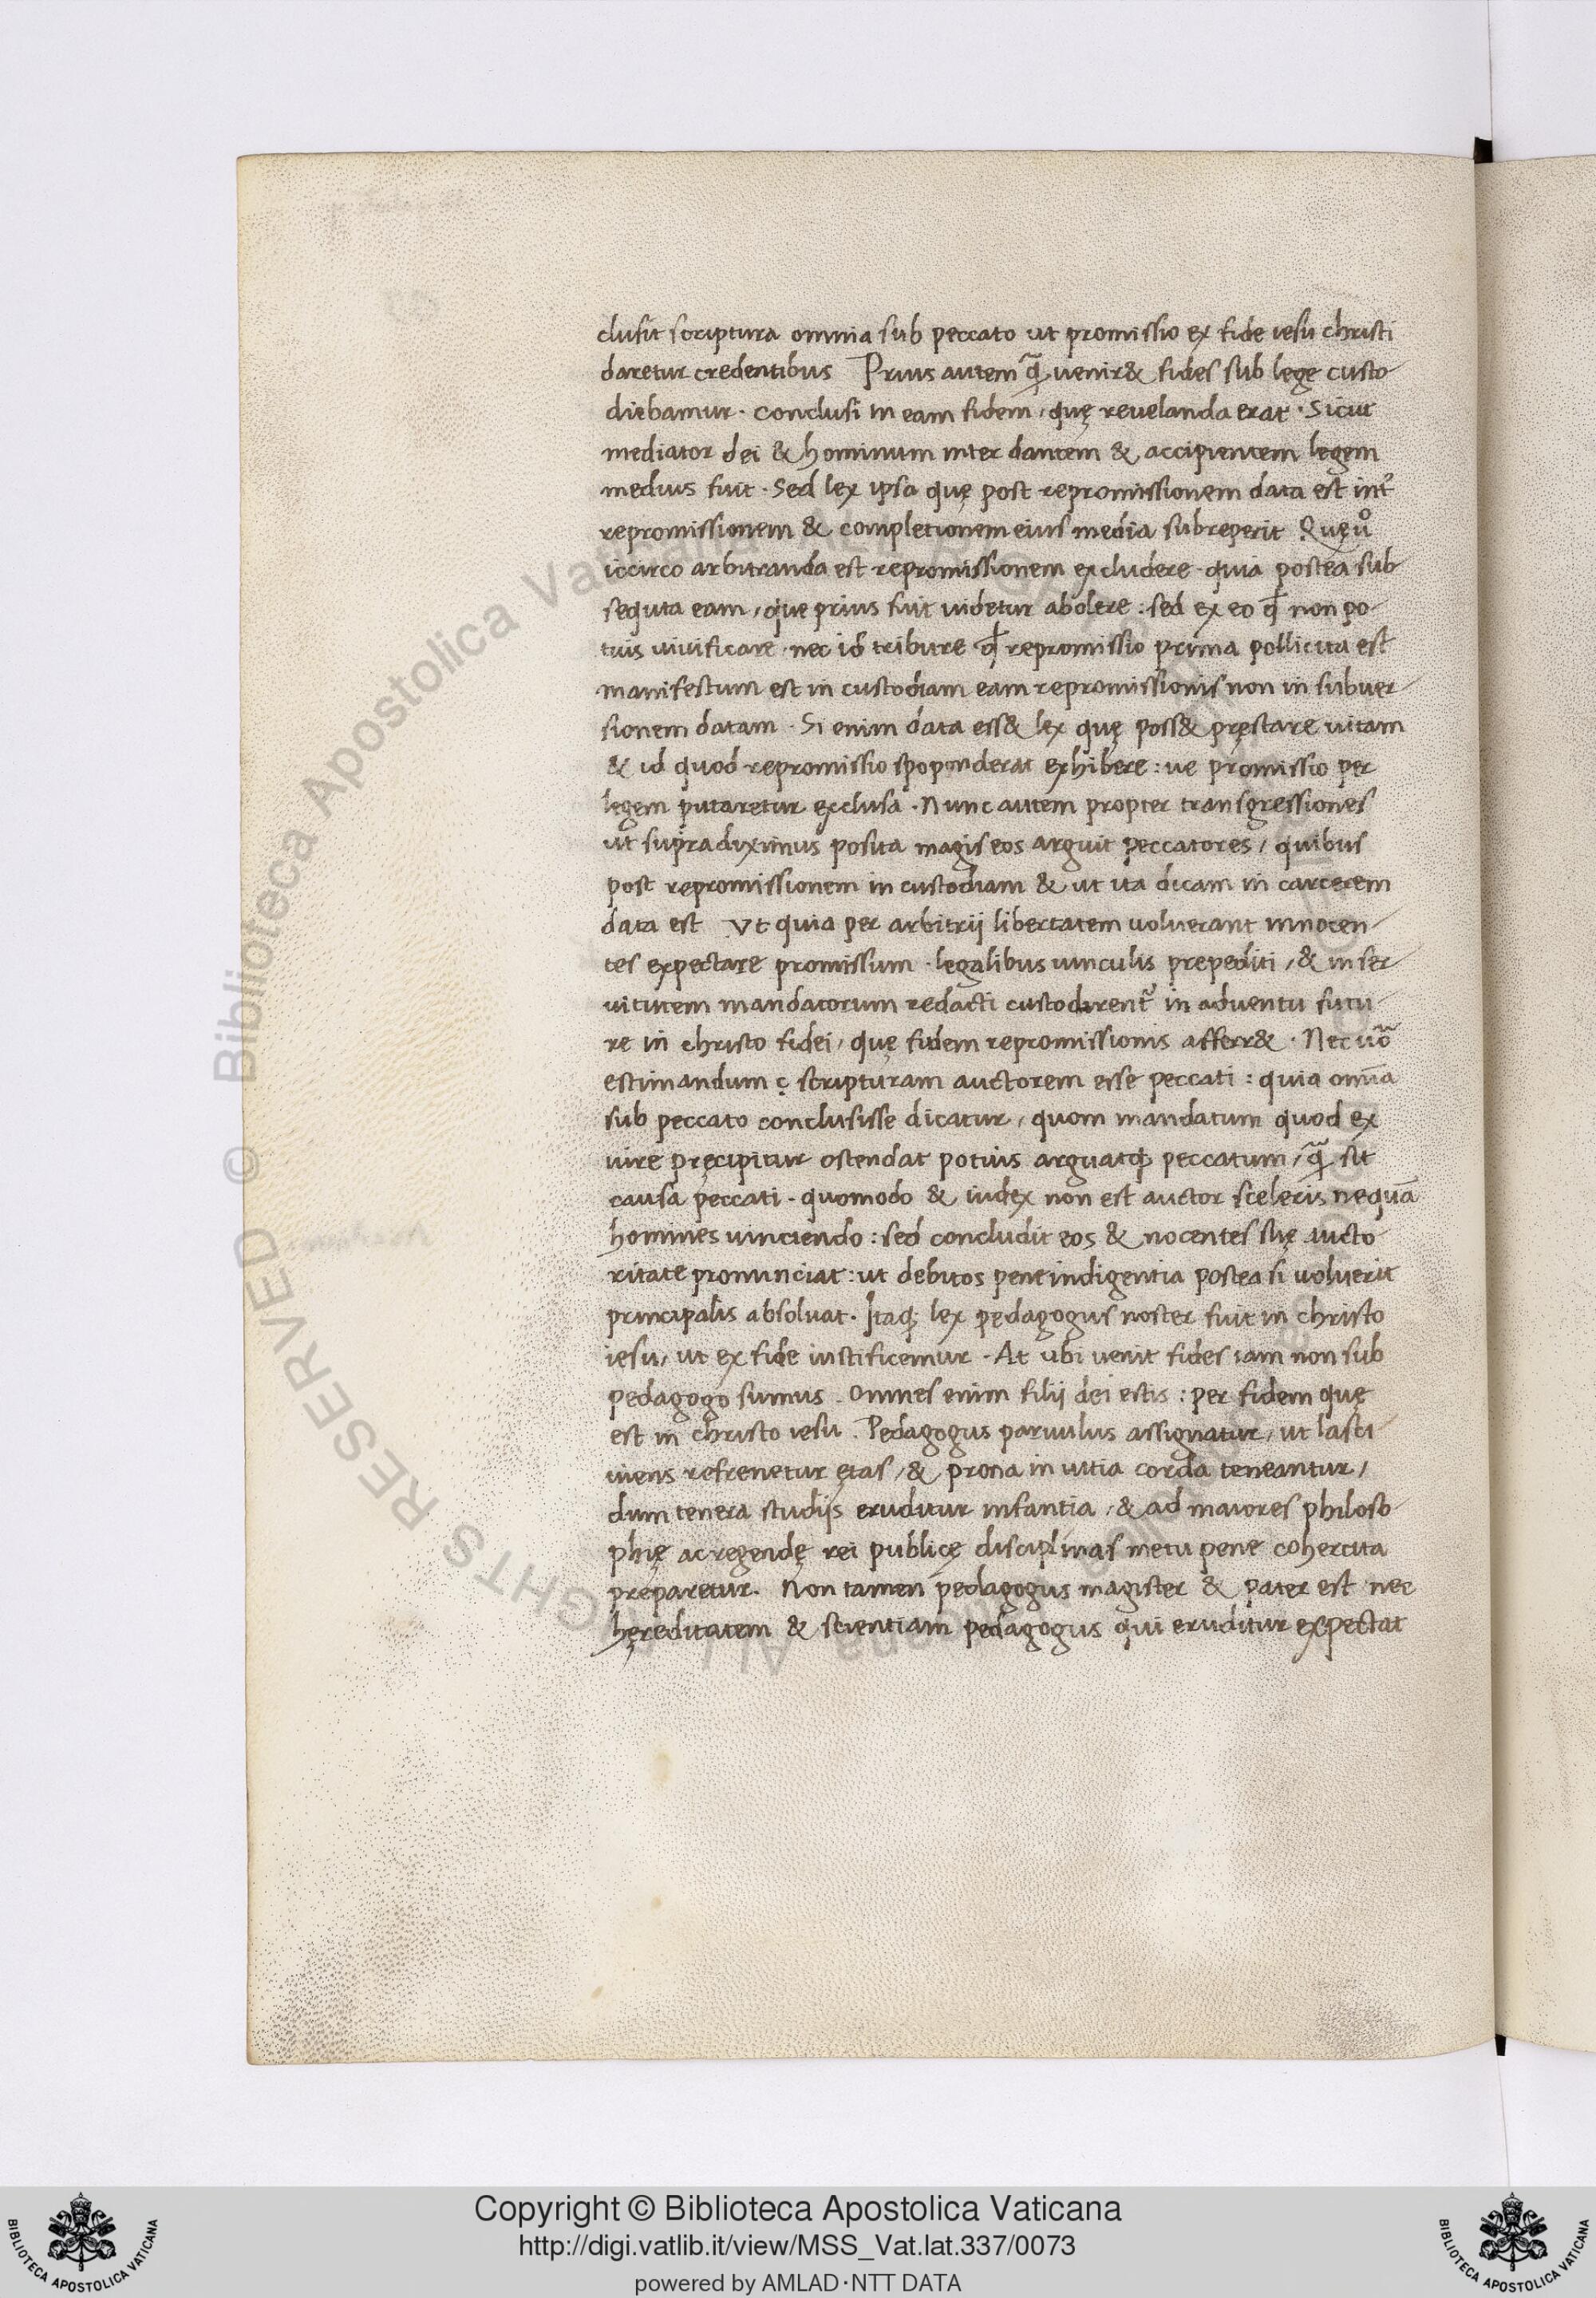 clusit scriptura omnia sub peccato ut promissio ex fide iesu christi
daretur credentibus Prius autem q̃ uenir& fides sub lege custo-
diebamur · conclusi in eam fidem, quę reuelanda erat · Sicut
mediator dei & hominum inter dantem & accipientem legem
medius fuit · Sed lex ipsa quę post repromissionem data est int̃
repromissionem & completionem eius media subrepsit Quę uͦ
iccirco arbitranda est repromissionem excludere · quia postea sub-
sequta eam, que prius fuit uidetur abolere : sed ex eo ꝙ non po-
tuis uiuificare · nec id tribuere ꝙ repromissio prima pollicita est
manifestum est in custodiam eam repromissionis non in subuer-
sionem datam · Si enim data ess& lex quę poss& pręstare uitam
& id quod repromissio spoponderat exhibere : ue promissio per
legem putaretur exclusa · Nunc autem propter transgressiones
ut supra diximus posita magis eos arguit peccatores, quibus
post repromissionem in custodiam & ut ita dicam in carcerem
data est Vt quia per arbitrij libertatem uoluerant innocen-
tes expectare promissum · legalibus uinculis prepediti, & in ser-
uitutem mandatorum redacti custodirent᷑ in aduentu futu-
re in christo fidei, quę fidem repromissionis afferr& · Nec uͦ
estimandum ę scripturam auctorem esse peccati : quia om̃ia
sub peccato conclusisse dicatur, quom mandatum quod ex
iure pręcipitur ostendat potius arguatqꝫ peccatum, q̃ sit
causa peccati · quomodo & iudex non est auctor sceleris nequã
homines uinciendo : sed concludit eos & nocentes suę aucto-
ritate pronunciat : ut debitos pene indigentia postea si uoluerit
principalis absoluat · Itaqꝫ lex pędagogus noster fuit in christo
iesu, ut ex fide iustificemur · At ubi uenit fides iam non sub
pedagogo sumus . omnes enim filij dei estis : per fidem quę
est in christo iesu . Pedagogus paruulus assignatur, ut lasci-
uiens refrenetur ętas, & prona in uitia corda teneantur,
dum tenera studijs eruditur infantia, & ad maiores philoso-
phię ac regendę rei publicę disciplinas metu pene cohercita
preparetur. Non tamen pedagogus magister & pater est nec
hęreditatem & scientiam pedagogus qui eruditur expectat
Copyright © Biblioteca Apostolica Vaticana
http://digi.vatlib.it/view/MSS_Vat.lat.337/0073
powered by AMLAD·NTT DATA